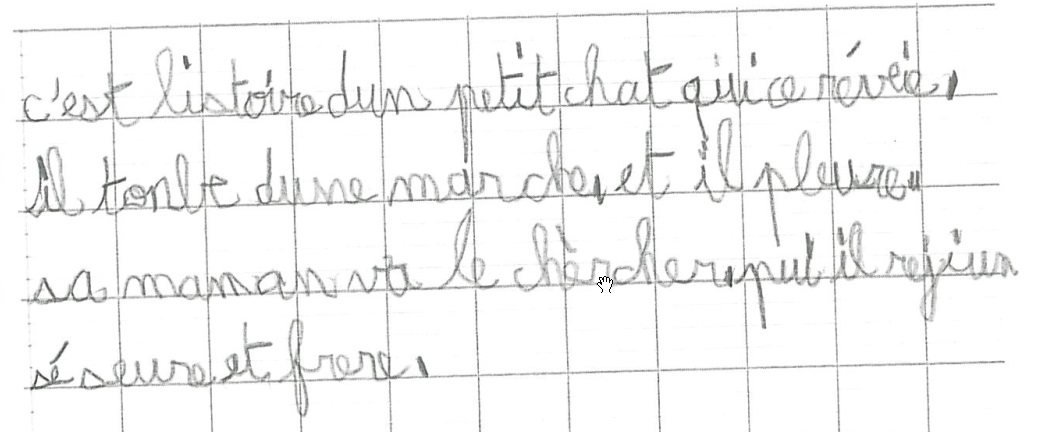 c'est listoire dun petit chat qui ce révéie,
Il tonbe dune marche, et il pleure
sa maman va le chèrcher, pui il rejiun
sé seure et frere,